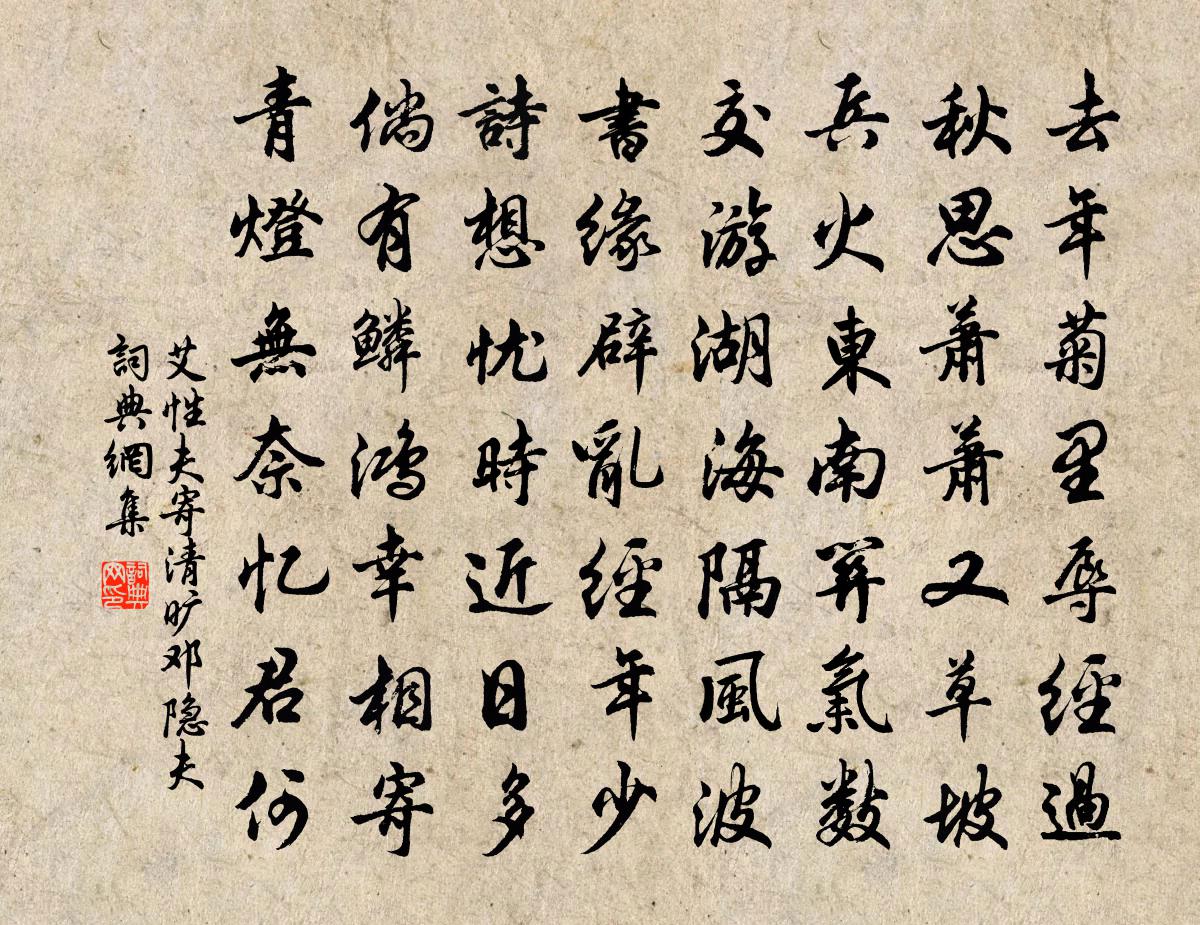 去年菊里辱經過
秋思蕭蕭又草坡
兵火東南關氣數
交游湖海隔風波
書緣辟亂經年少
詩想忧時近日多
倘有鱗鴻幸相寄
青燈無奈忆君何
艾性夫寄清旷邓隐夫
詞典網集
詞典网印